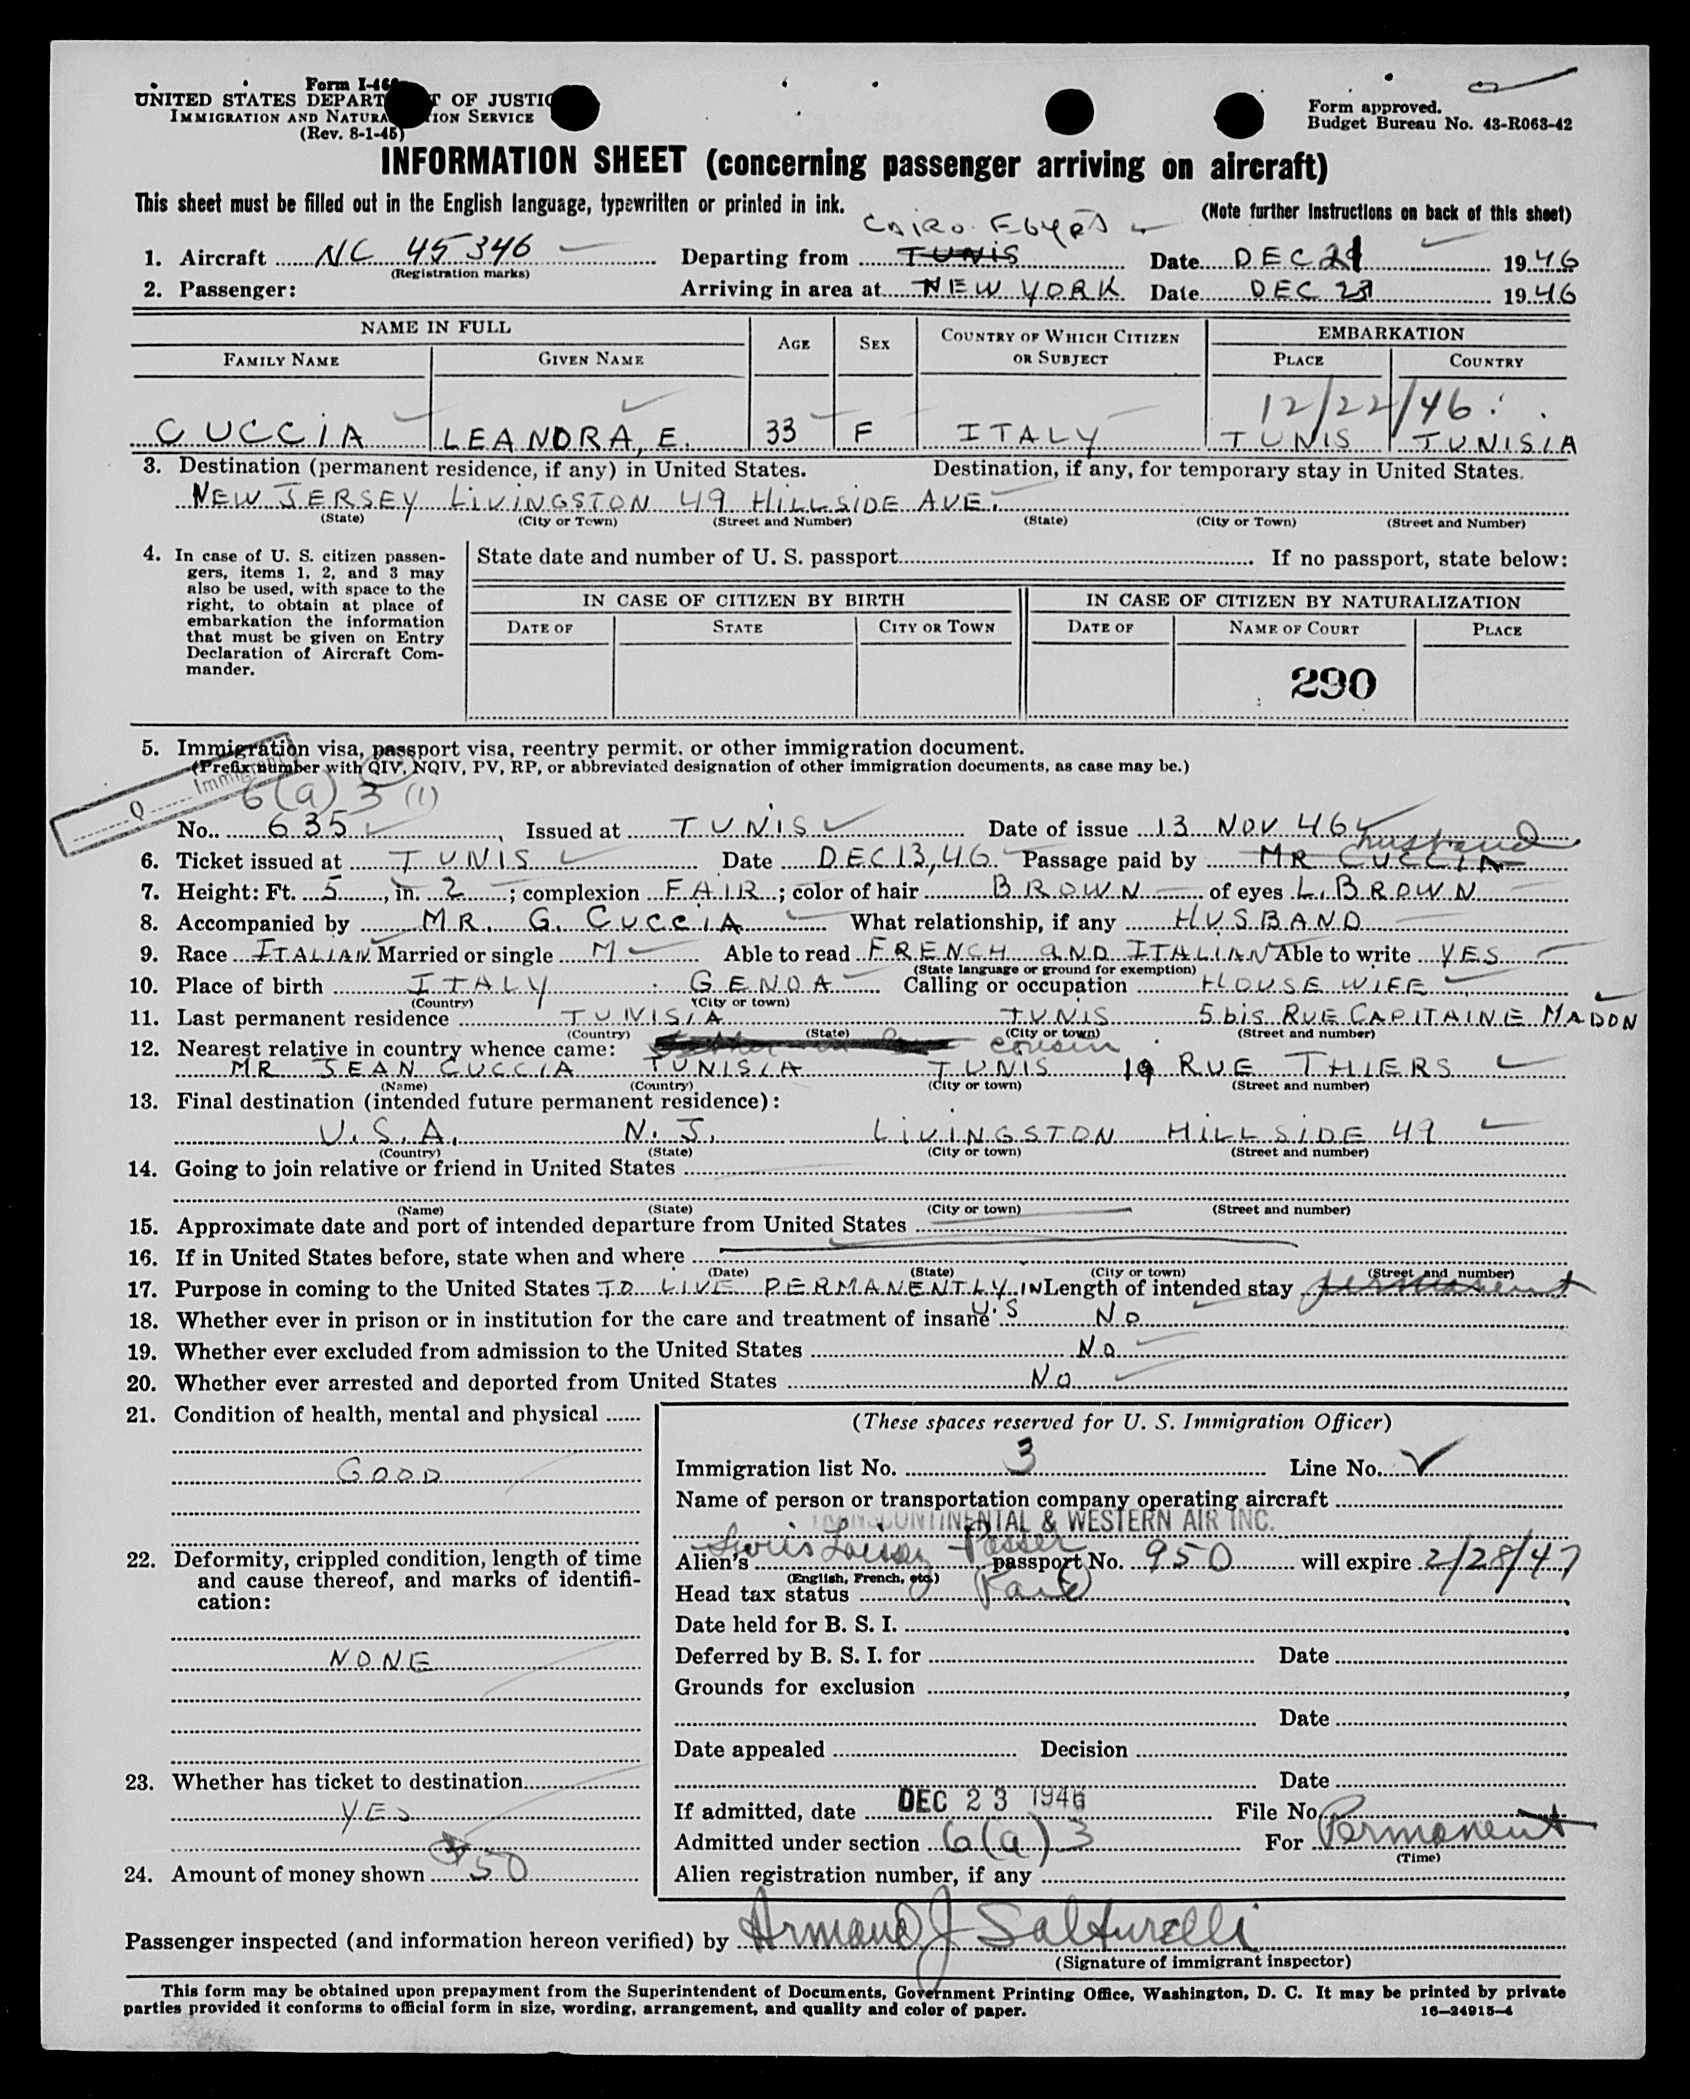 Form I-466
UNITED STATES DEPARTMENT OF JUSTICE
IMMIGRATION AND NATURALIZATION SERVICE
(Rev. 8-1-45)
Form approved.
Budget Bureau No. 43-R063-42
INFORMATION SHEET (concerning passenger arriving on aircraft)
This sheet must be filled out in the English language, typewritten or printed in ink.
(Note further instructions on back of this sheet)
CAIRO. EGYPT
1. Aircraft NC 45346 Departing from TUNIS Date DEC 21 1946
(Registration marks)
2. Passenger: Arriving in area at NEW YORK Date DEC 23 1946
NAME IN FULL AGE SEX COUNTRY OF WHICH CITIZEN OR SUBJECT EMBARKATION
FAMILY NAME GIVEN NAME PLACE COUNTRY
12/22/46
CUCCIA LEANDRA, E. 33 F ITALY TUNIS TUNISIA
3. Destination (permanent residence, if any) in United States. Destination, if any, for temporary stay in United States.
NEW JERSEY LIVINGSTON 49 HILLSIDE AVE.
(State) (City or Town) (Street and Number) (State) (City or Town) (Street and Number)
4. In case of U. S. citizen passengers, items 1, 2, and 3 may also be used, with space to the right, to obtain at place of embarkation the information that must be given on Entry Declaration of Aircraft Commander.
State date and number of U. S. passport If no passport, state below:
IN CASE OF CITIZEN BY BIRTH IN CASE OF CITIZEN BY NATURALIZATION
DATE OF STATE CITY OR TOWN DATE OF NAME OF COURT PLACE
290
5. Immigration visa, passport visa, reentry permit, or other immigration document.
(Prefix number with QIV, NQIV, PV, RP, or abbreviated designation of other immigration documents, as case may be.)
Q Immigrant
6(a) 3 (1)
No. 635 Issued at TUNIS Date of issue 13 NOV 46
husband
6. Ticket issued at TUNIS Date DEC 13, 46. Passage paid by MR CUCCIA
7. Height: Ft. 5, in. 2; complexion FAIR; color of hair BROWN of eyes L. BROWN
8. Accompanied by MR. G. CUCCIA What relationship, if any HUSBAND
9. Race ITALIAN Married or single M Able to read FRENCH AND ITALIAN Able to write YES
(State language or ground for exemption)
10. Place of birth ITALY GENOA Calling or occupation HOUSE WIFE
(Country) (City or town)
11. Last permanent residence TUNISIA TUNIS 5 bis RUE CAPITAINE MADON
(Country) (State) (City or town) (Street and number)
12. Nearest relative in country whence came: cousin
MR JEAN CUCCIA TUNISIA TUNIS 19 RUE THIERS
(Name) (Country) (City or town) (Street and number)
13. Final destination (intended future permanent residence):
U.S.A. N.J. LIVINGSTON HILLSIDE 49
(Country) (State) (City or town) (Street and number)
14. Going to join relative or friend in United States
(Name) (State) (City or town) (Street and number)
15. Approximate date and port of intended departure from United States
16. If in United States before, state when and where
(Date) (State) (City or town) (Street and number)
17. Purpose in coming to the United States TO LIVE PERMANENTLY IN U.S Length of intended stay permanent
18. Whether ever in prison or in institution for the care and treatment of insane NO
19. Whether ever excluded from admission to the United States NO
20. Whether ever arrested and deported from United States NO
21. Condition of health, mental and physical
GOOD
22. Deformity, crippled condition, length of time and cause thereof, and marks of identification:
NONE
23. Whether has ticket to destination
YES
24. Amount of money shown 50
(These spaces reserved for U. S. Immigration Officer)
Immigration list No. 3 Line No.
Name of person or transportation company operating aircraft
TRANSCONTINENTAL & WESTERN AIR INC.
Alien's Laissez Passer passport No. 950 will expire 2/28/47
(English, French, etc.)
Head tax status Paid
Date held for B. S. I.
Deferred by B. S. I. for Date
Grounds for exclusion
Date
Date appealed Decision
Date
If admitted, date DEC 23 1946 File No.
Admitted under section 6(a)3 For Permanent
(Time)
Alien registration number, if any
Passenger inspected (and information hereon verified) by Armand J Salturelli
(Signature of immigrant inspector)
This form may be obtained upon prepayment from the Superintendent of Documents, Government Printing Office, Washington, D. C. It may be printed by private
parties provided it conforms to official form in size, wording, arrangement, and quality and color of paper. 16—24915-4